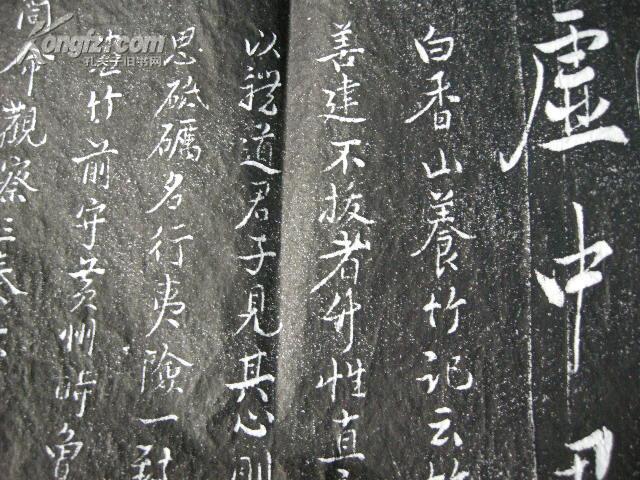 虛中
白香山養竹記云竹
善建不拔者竹性直
以體道君子見其心則
思砥礪名行夷險一致
竹前守黃州時曾
命觀察三
kongfz.com
孔夫子旧书网